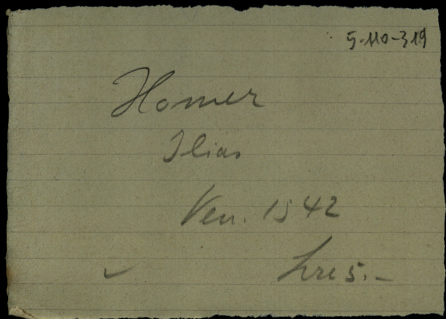 5-110-319
Homer
Ilias
Ven. 1542
Lre 5.-